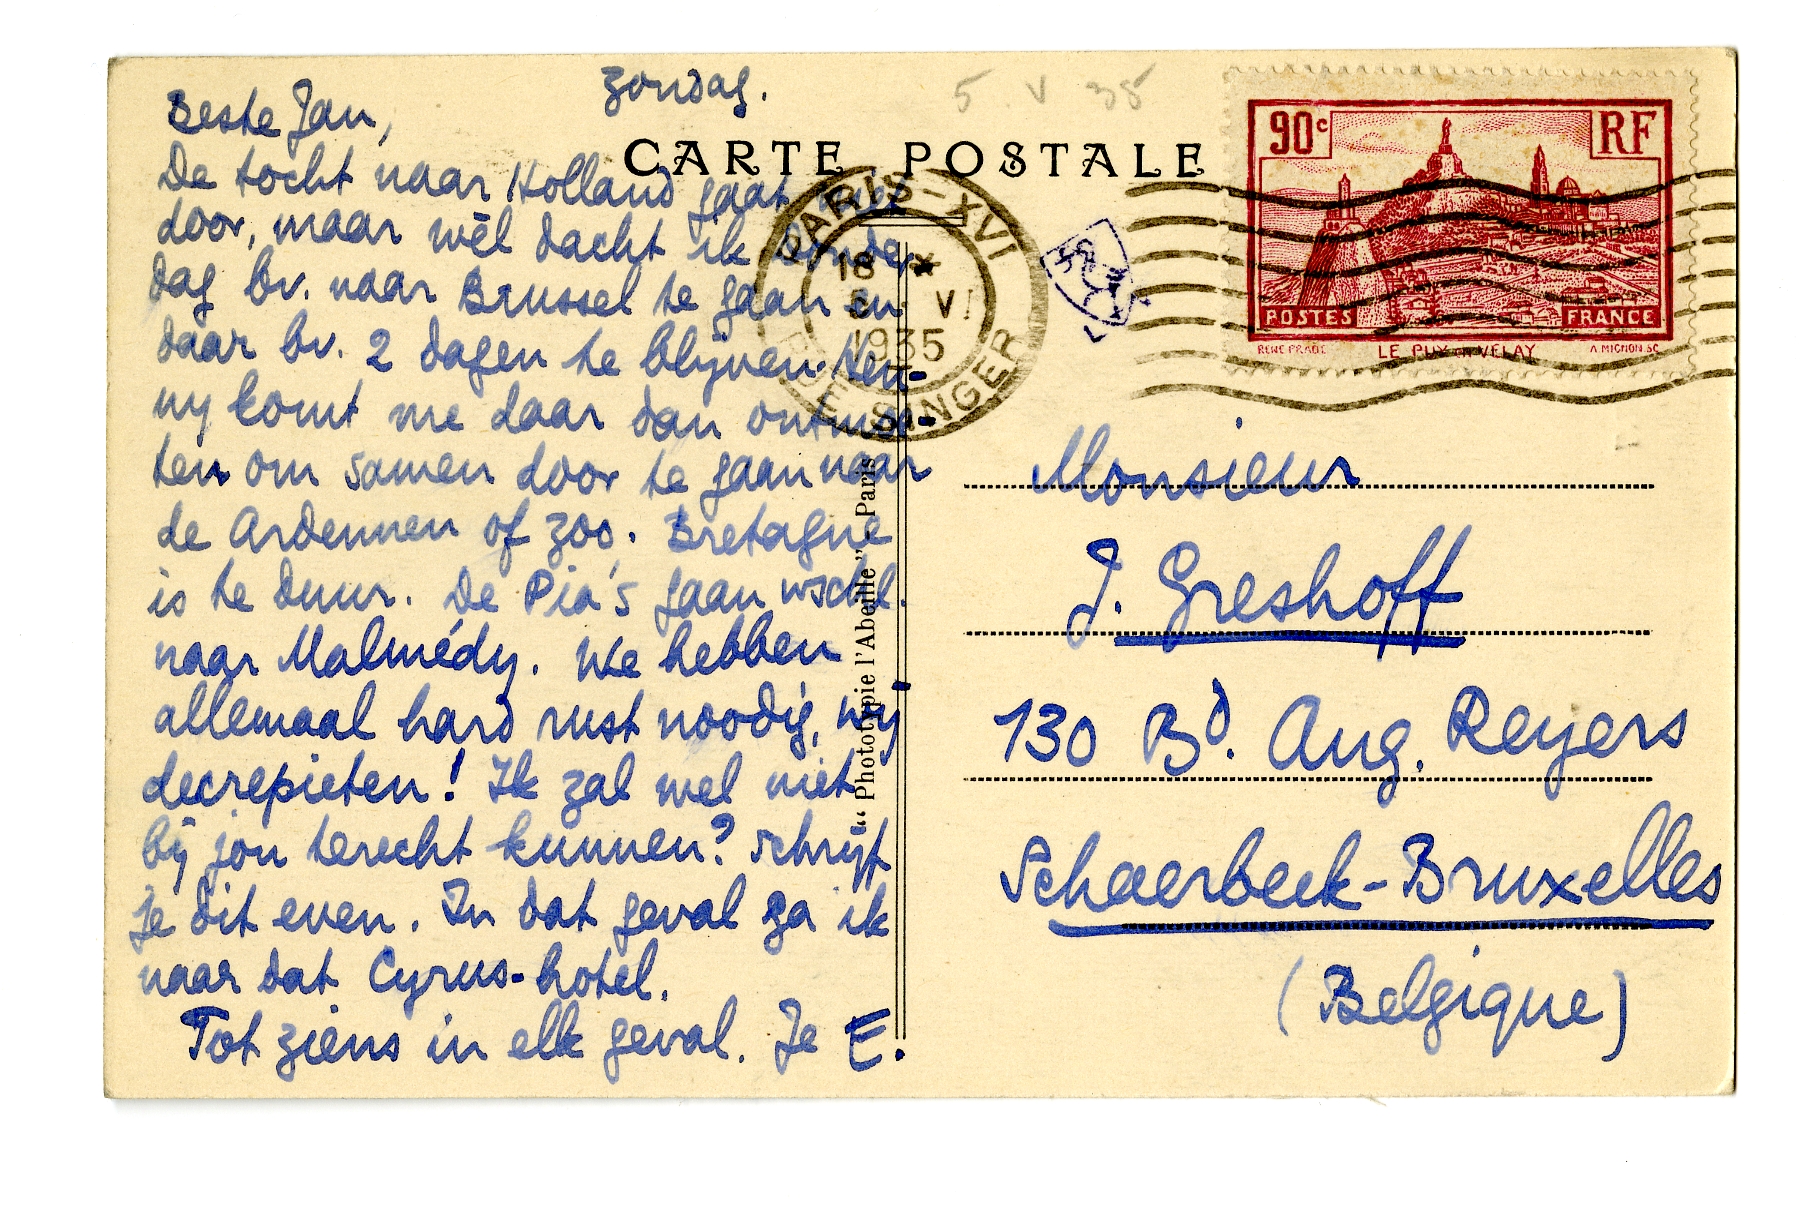 Zondag.
5 V 35
Beste Jan,
De tocht naar Holland gaat niet
door, maar wèl dacht ik Donder
dag bv. naar Brussel te gaan en
daar bv. 2 dagen te blijven. Hen-
ny komt me daar dan ontmoe-
ten om samen door te gaan naar
de Ardennen of zoo. Bretagne
is te duur. De Pia's gaan wschl.
naar Malmédy. We hebben
allemaal hard rust noodig, wij
decrepieten! Ik zal wel niet
bij jou terecht kunnen? Schrijf
je dit even. In dat geval ga ik
naar dat Cyrus-hotel.
Tot ziens in elk geval. Je E.
CARTE POSTALE
"Phototypie l'Abeille" Paris
PARIS-XVI
18
VI
1935
SINGER
90c
RF
POSTES
FRANCE
LE PUY EN VELAY
Monsieur
J. Greshoff
130 Bd. Aug. Reyers
Schaerbeek-Bruxelles
(Belgique)